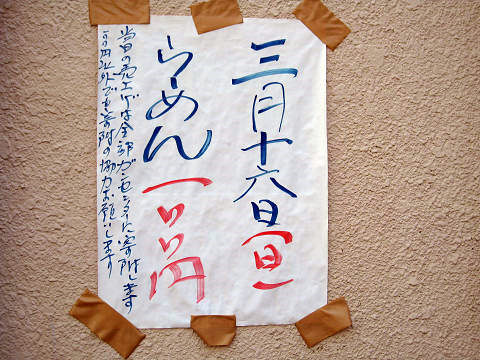 三月十六日(日)
らーめん一〇〇円
当日の売上げは全部ガンセンターに寄附します
一〇〇円以外でも寄附の協力お願いします